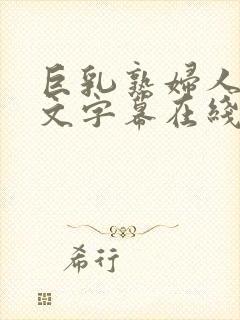 巨乳熟婦人
文字幕在綫
希行